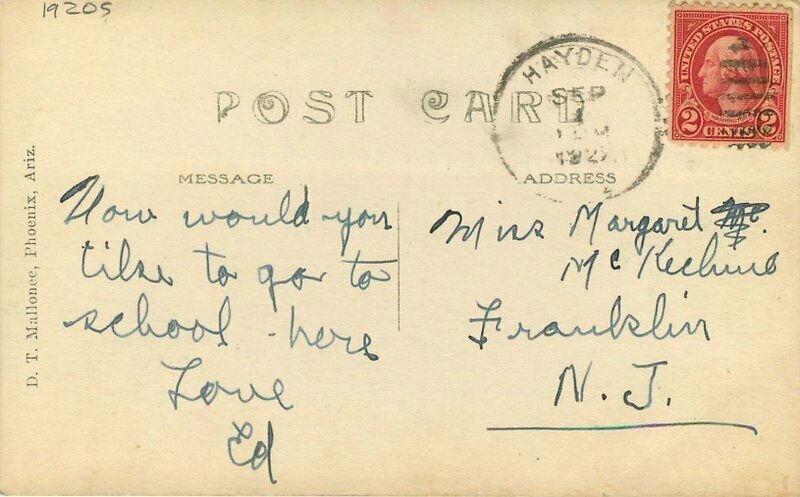 1920s
UNITED STATES POSTAGE
WASHINGTON
2 CENTS 2
HAYDEN
SEP
POST CARD
MESSAGE
ADDRESS
D. T. Mallonee, Phoenix, Ariz.
How would you
like to go to
school here
Love
Ed
Miss Margaret
Mc
Franklin
N. J.